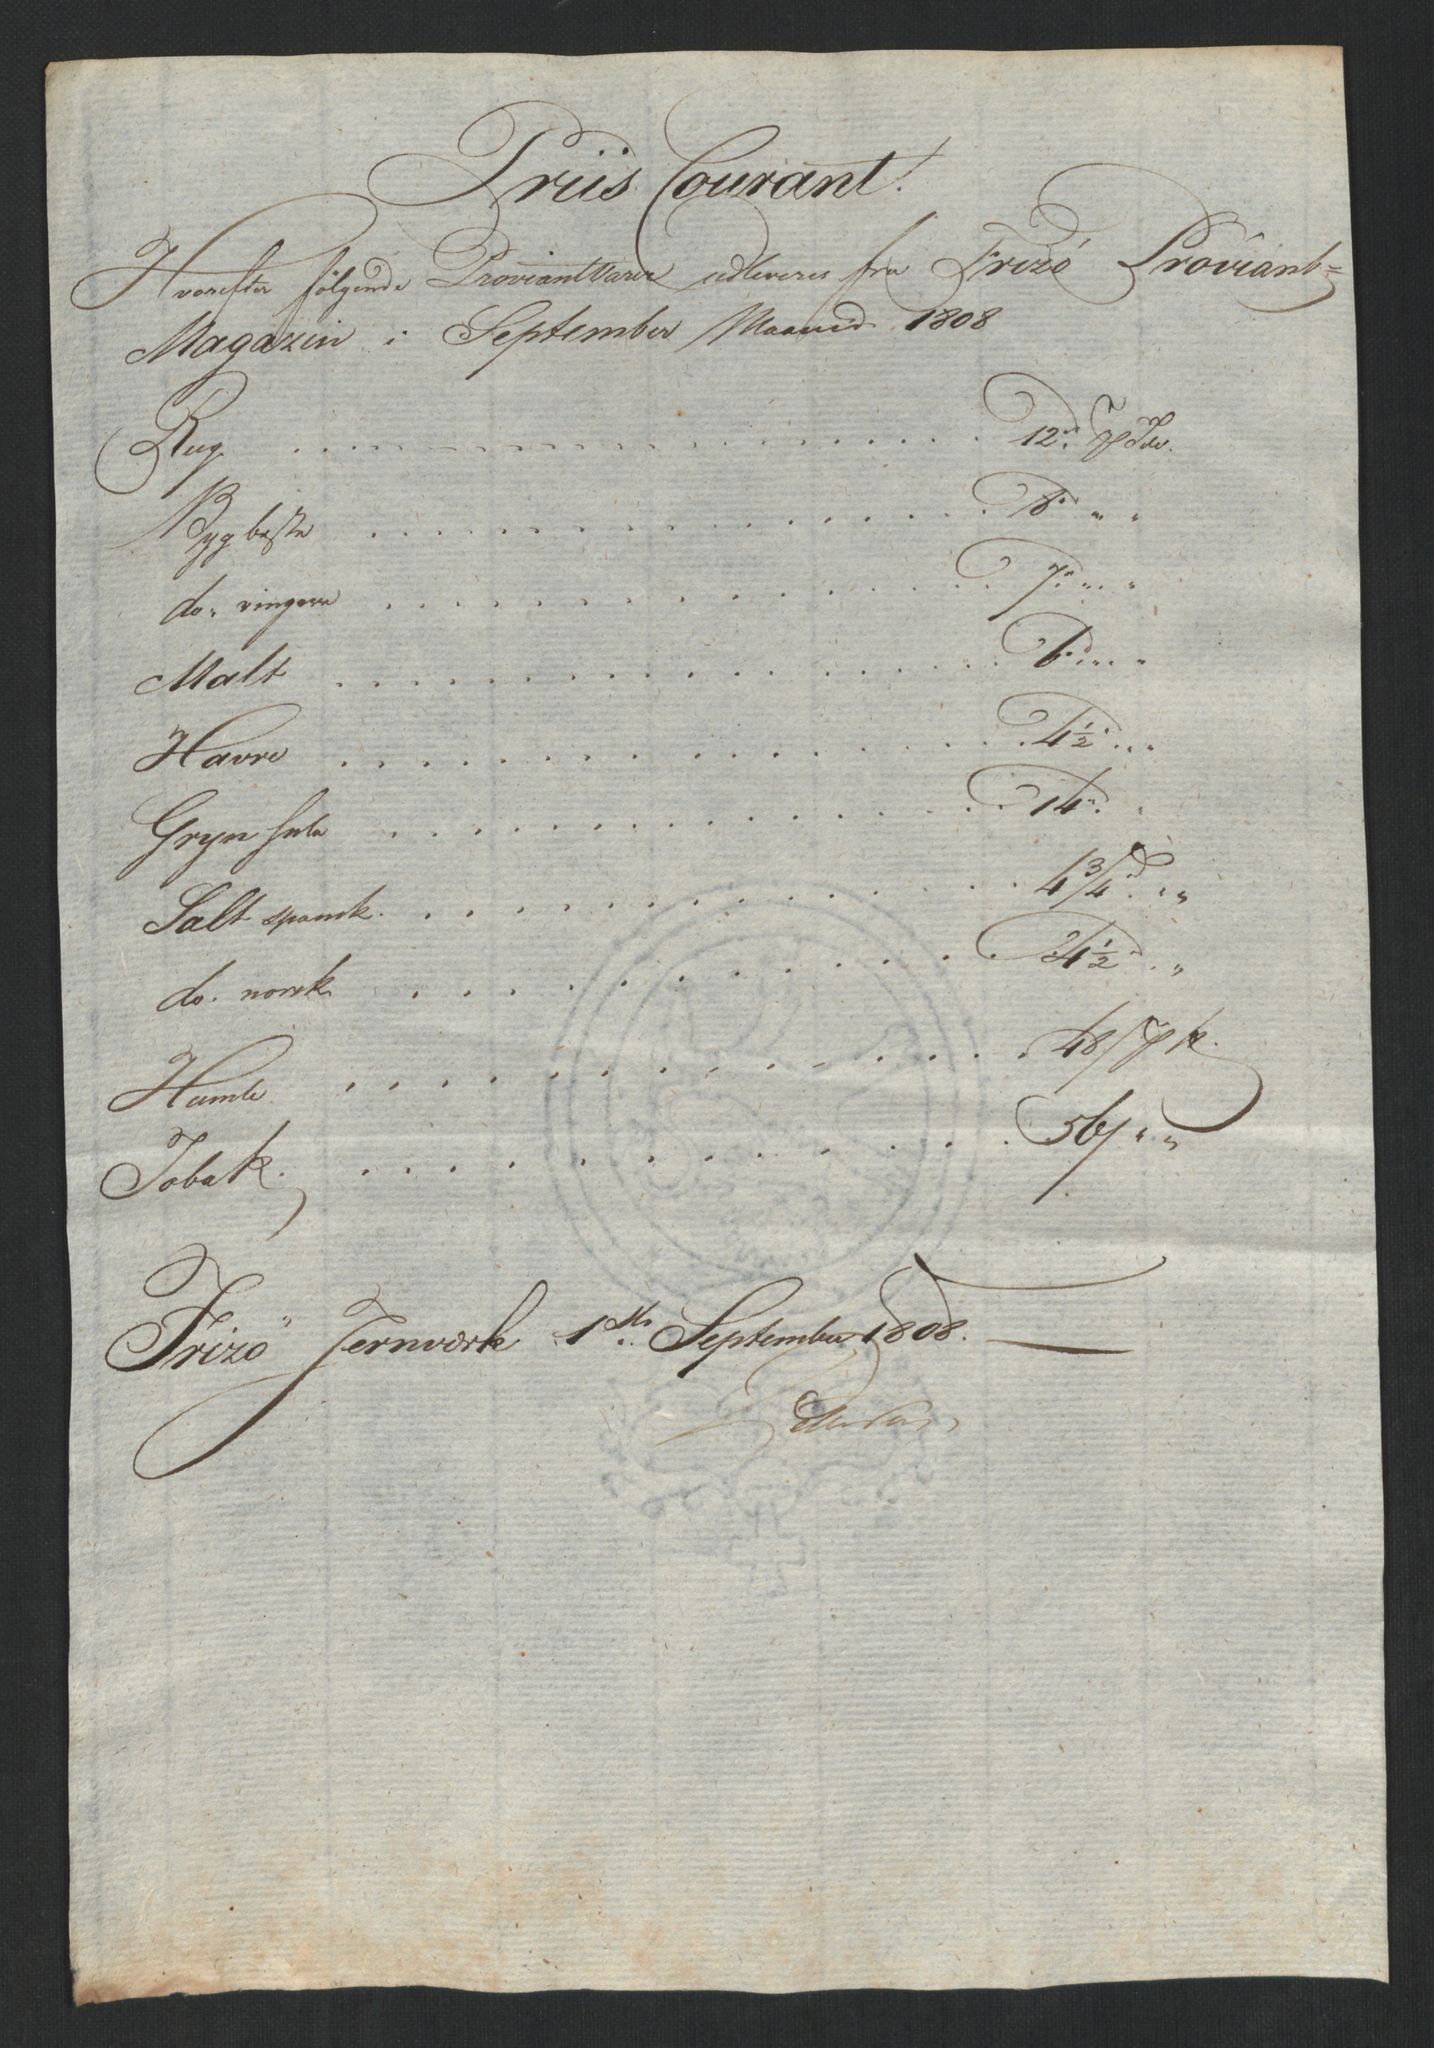 Priis Courant.
Hvorefter følgende Proviantvarer udleveres fra Frizö Proviant-
Magazin i September Maaned 1808
Rug 12 rd pr Tde.
Byg beste 8 rd " "
do. ringere 7 rd " "
Malt 6 rd " "
Havre 4 1/2 rd " "
Gryn hele 14 rd "
Salt spansk 4 3/4 rd " "
do. norsk 4 1/2 rd "
Humle 48 s pr
Tobak 56 s " "
Frizö Jernværk 1ste September 1808.